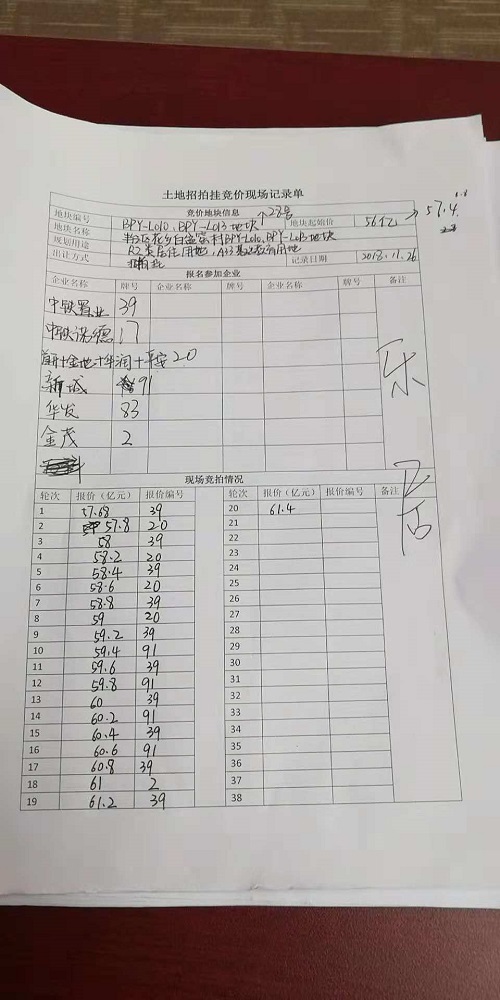 土地招拍挂竞价现场记录单
竞价地块信息
地块编号 BPY-L010、BPY-L013地块 ↑28号
地块名称 地块起始价 56亿 → 57.4
规划用途 R2类居住用地、A33基础教育用地
出让方式 挂 记录日期 2018.11.26
报名参加企业
企业名称 牌号 企业名称 牌号 企业名称 牌号 备注
中铁置业 39
中铁诺德 17
首开+金地+华润+平安 20
新城 91
华发 83
金茂 2
乐
居
现场竞拍情况
轮次 报价（亿元） 报价编号 轮次 报价（亿元） 报价编号 备注
1 57.68 39 20 61.4
2 57.8 20 21
3 58 39 22
4 58.2 20 23
5 58.4 39 24
6 58.6 20 25
7 58.8 39 26
8 59 20 27
9 59.2 39 28
10 59.4 91 29
11 59.6 39 30
12 59.8 91 31
13 60 39 32
14 60.2 91 33
15 60.4 39 34
16 60.6 91 35
17 60.8 39 36
18 61 2 37
19 61.2 39 38